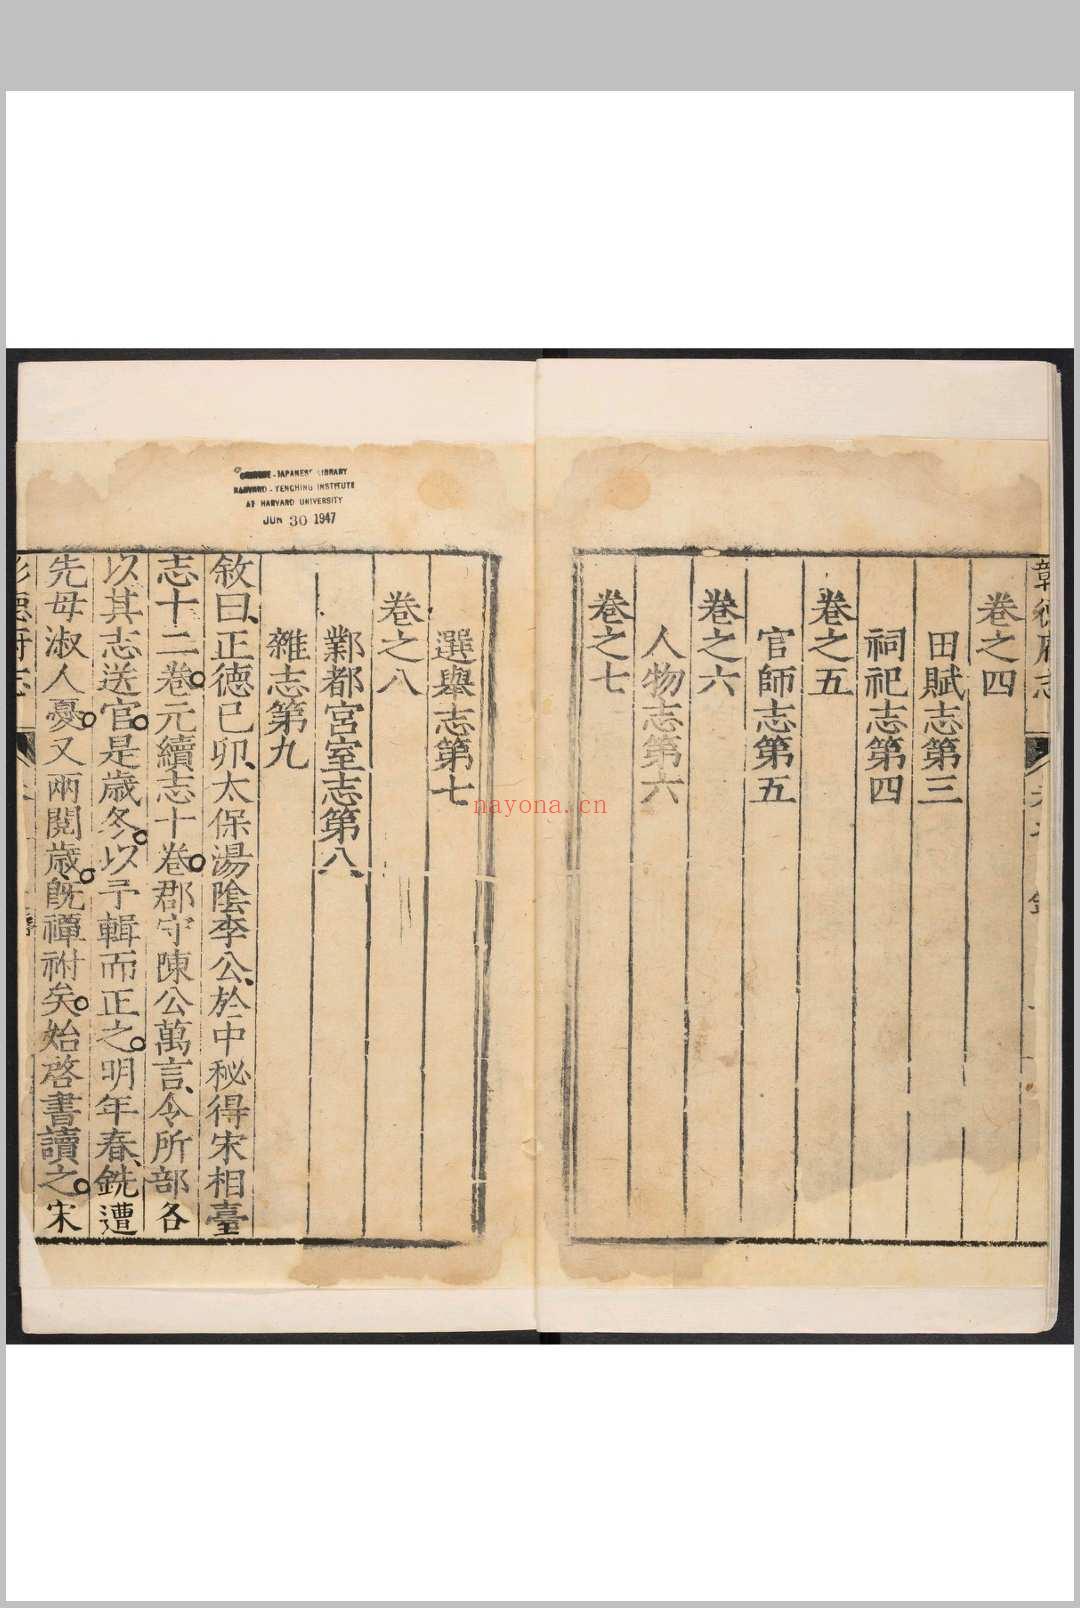 彰德府志
卷之四
田賦志第三
祠祀志第四
卷之五
官師志第五
卷之六
人物志第六
卷之七
選舉志第七
卷之八
鄴都宮室志第八
雜志第九
敘曰、正德己卯、太保湯陰李公、於中秘得宋相臺
志十二卷。元續志十卷。郡守陳公萬言、令所部各
以其志送官。是歲冬。以予輯而正之。明年春、銑遭
先母淑人憂。又兩閱歲。旣禫祔矣。始啓書讀之。宋
德府志
CHINESE-JAPANESE LIBRARY
HARVARD-YENCHING INSTITUTE
AT HARVARD UNIVERSITY
JUN 30 1947
nayona.cn